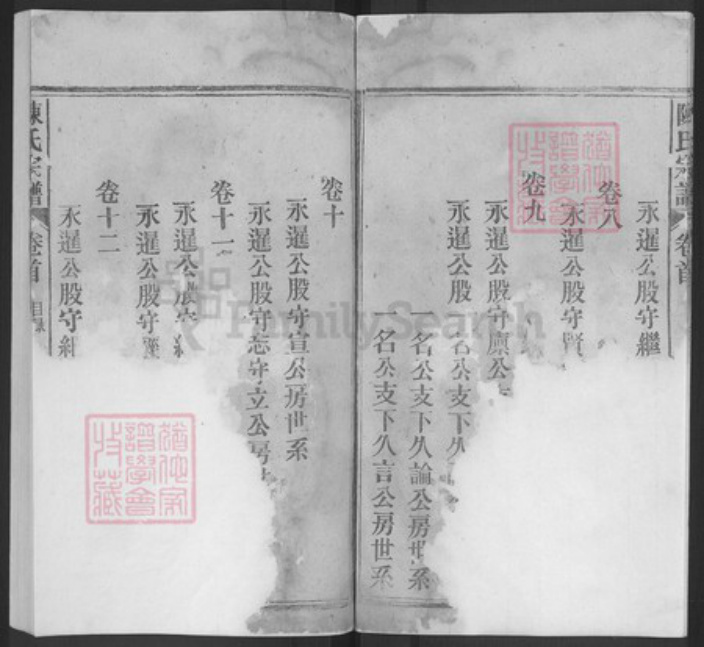 陳氏宗譜 卷首
永暹公股守繼
卷八
永暹公股守賢
卷九
永暹公股守廩公
永暹公股
名公支下久
一名公支下久論公房世系
一名公支下久言公房世系
卷十
永暹公股守宣公房世系
永暹公股守忘守立公房
卷十一
永暹公股守
永暹公股守
卷十二
永暹公股守
陳氏宗譜 卷首 目錄
猶他家譜學會特藏
猶他家譜學會特藏
FamilySearch